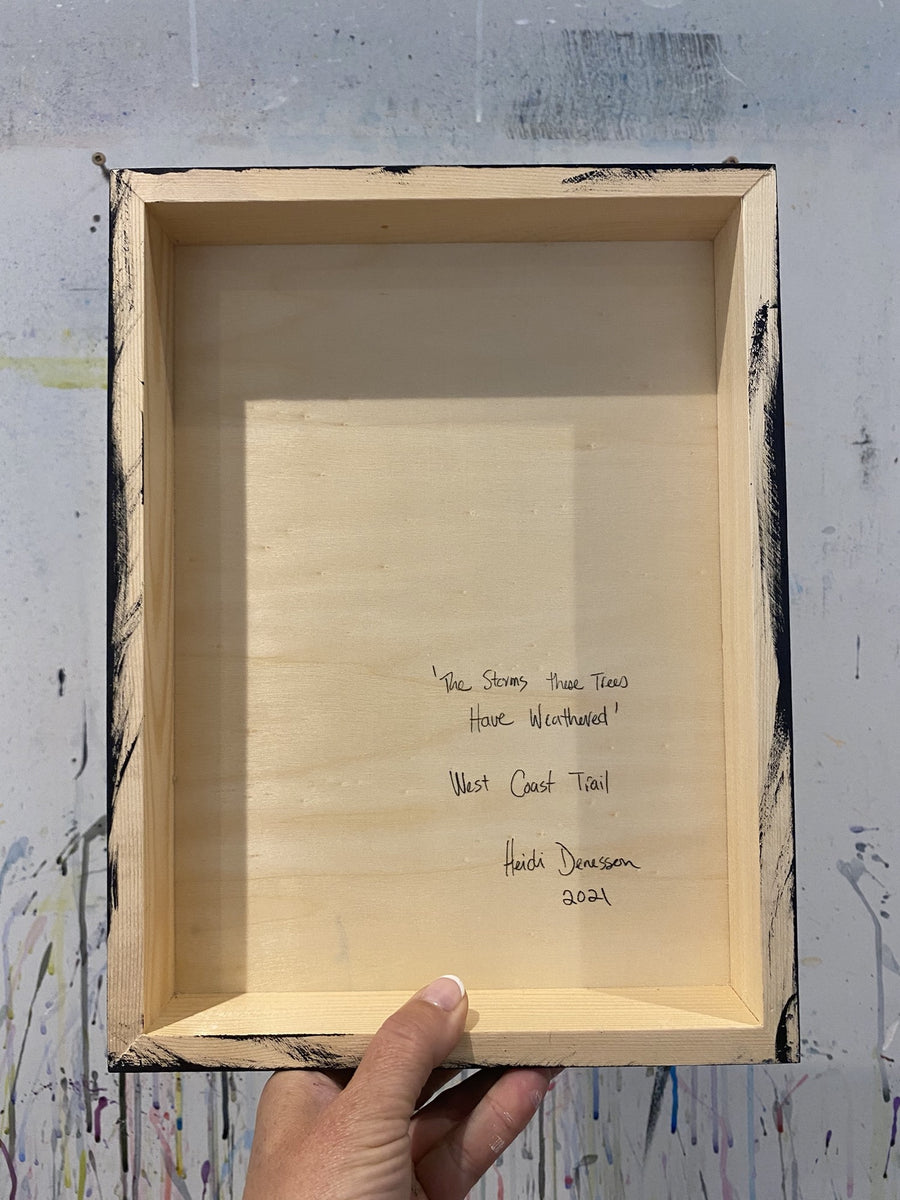 'The Storms these Trees
Have Weathered'
West Coast Trail
Heidi Denesson
2021